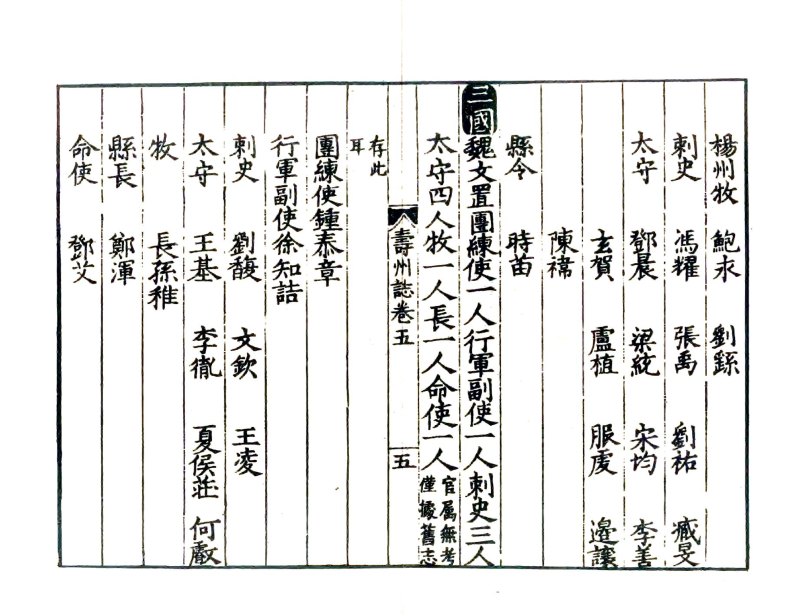 楊州牧 鮑永 劉繇
刺史 馮耀 張禹 劉祐 臧旻
太守 鄧晨 梁統 宋均 李善
玄賀 盧植 服虔 邊讓
陳禕
縣令 時苗
三國魏文置團練使一人行軍副使一人刺史三人
太守四人牧一人長一人命使一人官属無考僅據舊志
壽州誌卷五 五
存此耳
團練使鍾泰章
行軍副使徐知誥
刺史 劉馥 文欽 王凌
太守 王基 李胤 夏侯莊 何
牧 長孫稚
縣長 鄭渾
命使 鄧艾